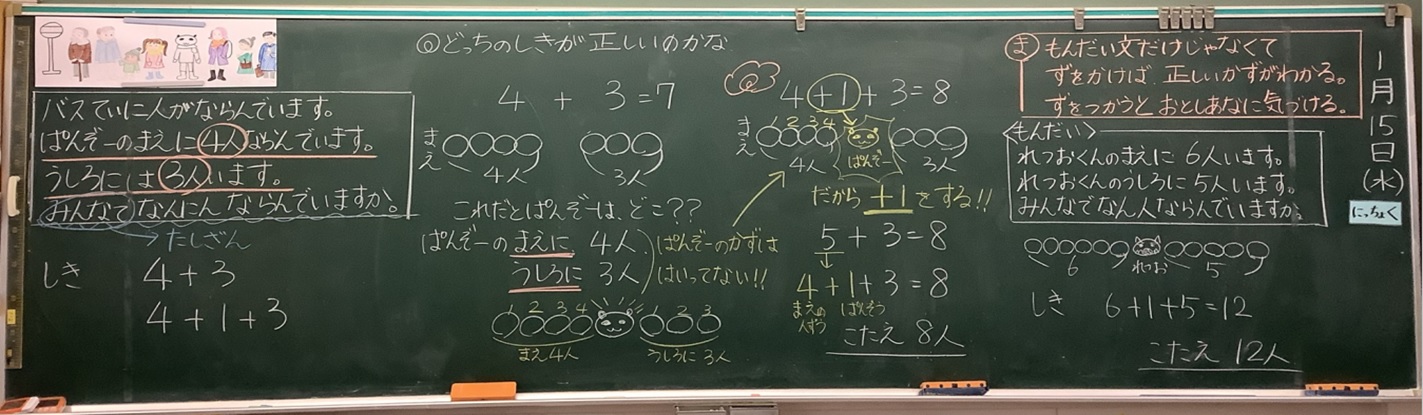 バスていに人がならんでいます。
ぱんぞーのまえに4人ならんでいます。
うしろには3人います。
みんなでなんにんならんでいますか。
たしざん
しき 4+3
4+1+3
◎どっちのしきが正しいのかな
4 + 3=7
まえ
4人 3人
これだとぱんぞーは、どこ??
ぱんぞーのまえに 4人
うしろに 3人
ぱんぞーのかずは
はいってない!!
1 2 3 4 1 2 3
まえ4人 うしろに3人
4+1+3=8
まえ
1 2 3 4
4人 ぱんぞー 3人
だから +1をする!!
5+3=8
4+1+3=8
まえの
人ずう
ぱんぞう
こたえ 8人
ま もんだい文だけじゃなくて
ずをかけば 正しいかずがわかる。
ずをつかうと おとしあなに気づける。
<もんだい>
れつおくんのまえに 6人います。
れつおくんのうしろに 5人います。
みんなでなん人ならんでいますか。
6 れつお 5
しき 6+1+5=12
こたえ 12人
1月15日(水)
にっちょく